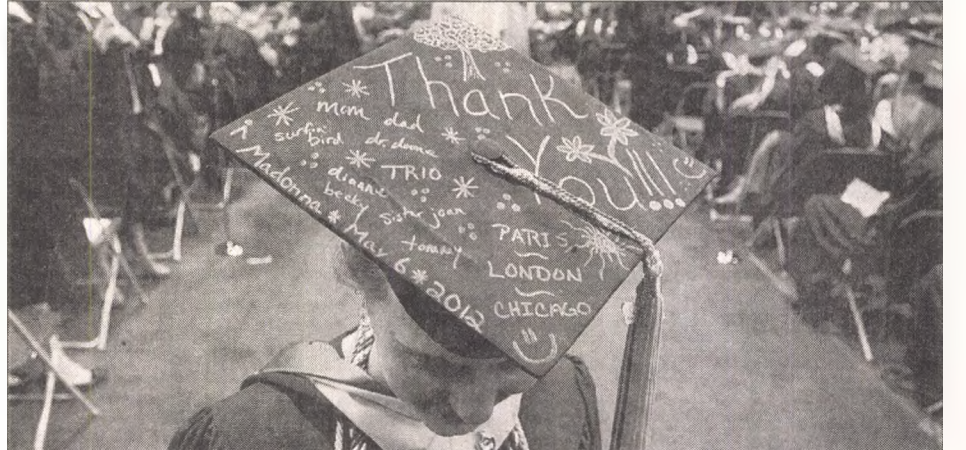 Thank
You!!!
mom dad
surfin'
bird dr. donna
TRIO
dianne
becky sister joan
tommy
Madonna * May 6 * 2012
PARIS
LONDON
CHICAGO